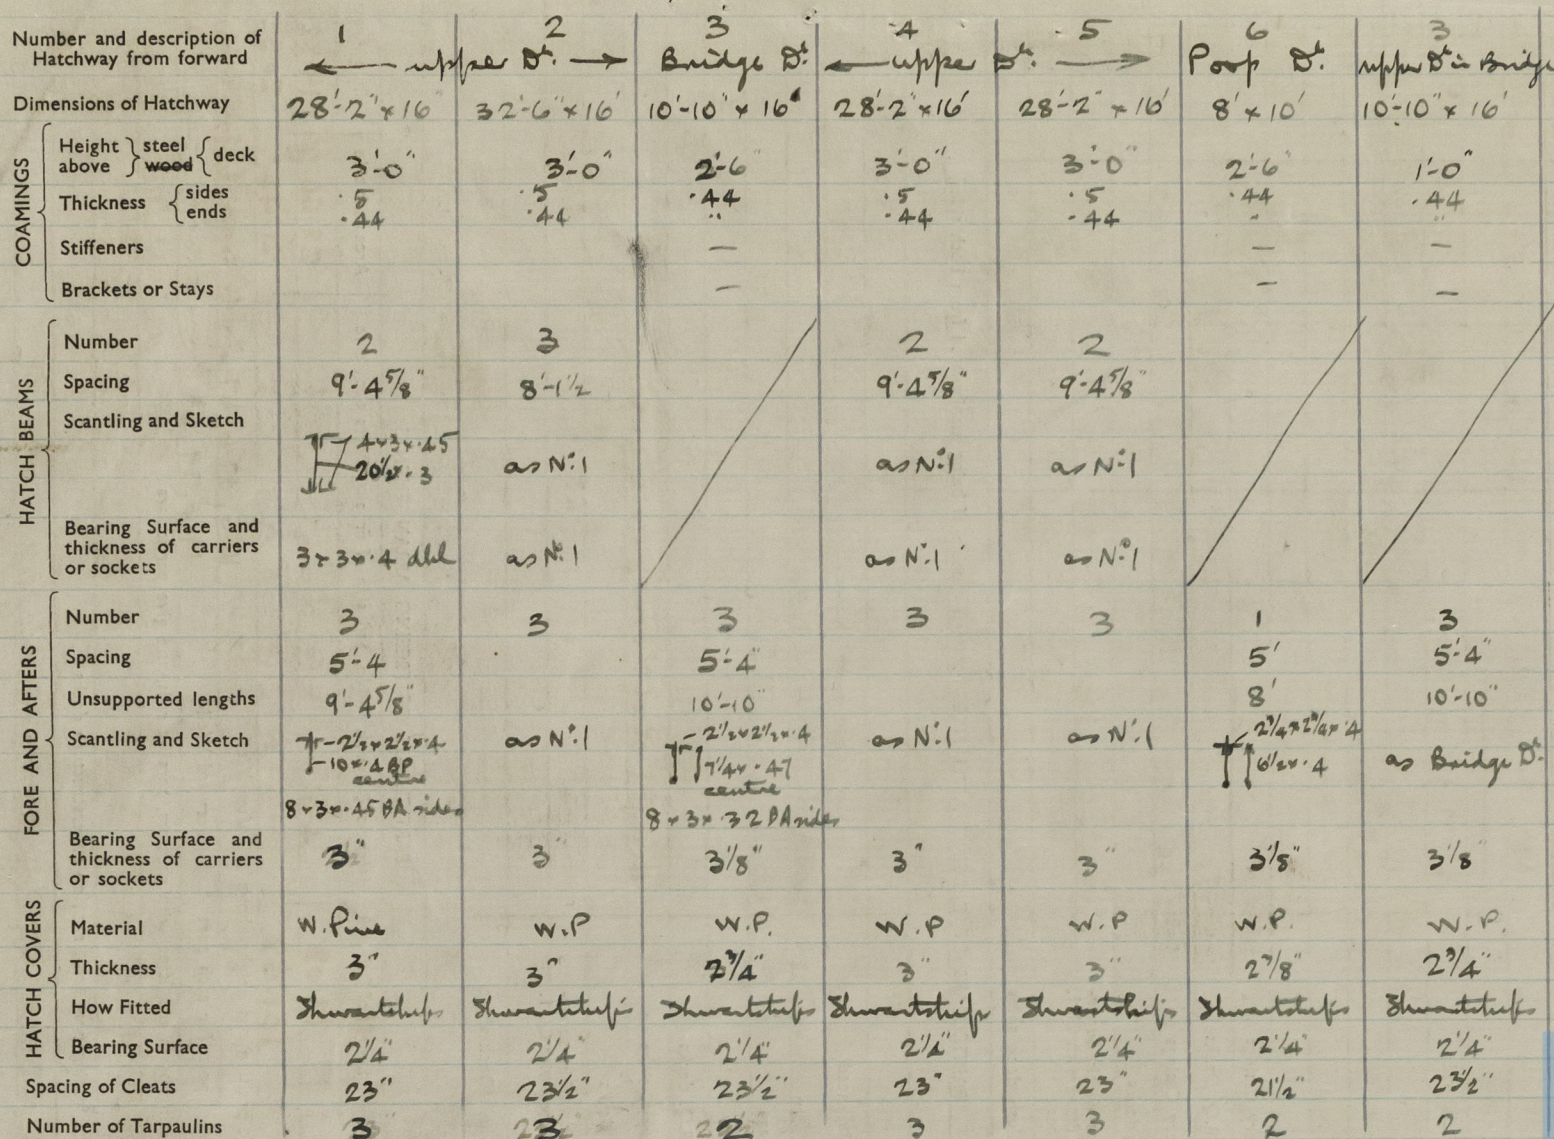 Number and description of Hatchway from forward 1 2 3 4 5 6 3
← upper Dk. → Bridge Dk. ← upper Dk. → Poop Dk. upper Dk in Bridge
Dimensions of Hatchway 28'-2" × 16' 32'-6" × 16' 10'-10" × 16' 28'-2" × 16' 28'-2" × 16' 8' × 10' 10'-10" × 16'
COAMINGS
Height above } steel wood { deck 3'-0" 3'-0" 2'-6" 3'-0" 3'-0" 2'-6" 1'-0"
Thickness { sides .5 .5 .44 .5 .5 .44 .44
ends .44 .44 " .44 .44 " "
Stiffeners — — —
Brackets or Stays — — —
HATCH BEAMS
Number 2 3 2 2
Spacing 9'-4 5/8" 8'-1 1/2 9'-4 5/8" 9'-4 5/8"
Scantling and Sketch
4×3×.45
20 1/2 × .3 as No.1 as No.1 as No.1
Bearing Surface and
thickness of carriers
or sockets 3×3×.4 dbl as No.1 as No.1 as No.1
FORE AND AFTERS
Number 3 3 3 3 3 1 3
Spacing 5'-4 5'-4" 5' 5'-4"
Unsupported lengths 9'-4 5/8" 10'-10" 8' 10'-10"
Scantling and Sketch 2 1/2 × 2 1/2 × .4 as No.1 2 1/2 × 2 1/2 × .4 as No.1 as No.1 2 3/4 × 2 3/4 × .4 as Bridge Dk.
10 × .4 BP 7 1/4 × .47 6 1/2 × .4
centre centre
8 × 3 × .45 BA sides 8 × 3 × .32 BA sides
Bearing Surface and
thickness of carriers
or sockets 3" 3" 3 1/8" 3" 3" 3 1/8" 3 1/8"
HATCH COVERS
Material W. Pine W.P W.P. W.P W.P W.P. W.P.
Thickness 3" 3" 2 3/4" 3" 3" 2 7/8" 2 3/4"
How Fitted Thwartships Thwartships Thwartships Thwartships Thwartships Thwartships Thwartships
Bearing Surface 2 1/4" 2 1/4" 2 1/4" 2 1/4" 2 1/4" 2 1/4" 2 1/4"
Spacing of Cleats 23" 23 1/2" 23 1/2" 23" 23" 21 1/2" 23 1/2"
Number of Tarpaulins 3 3 2 3 3 2 2